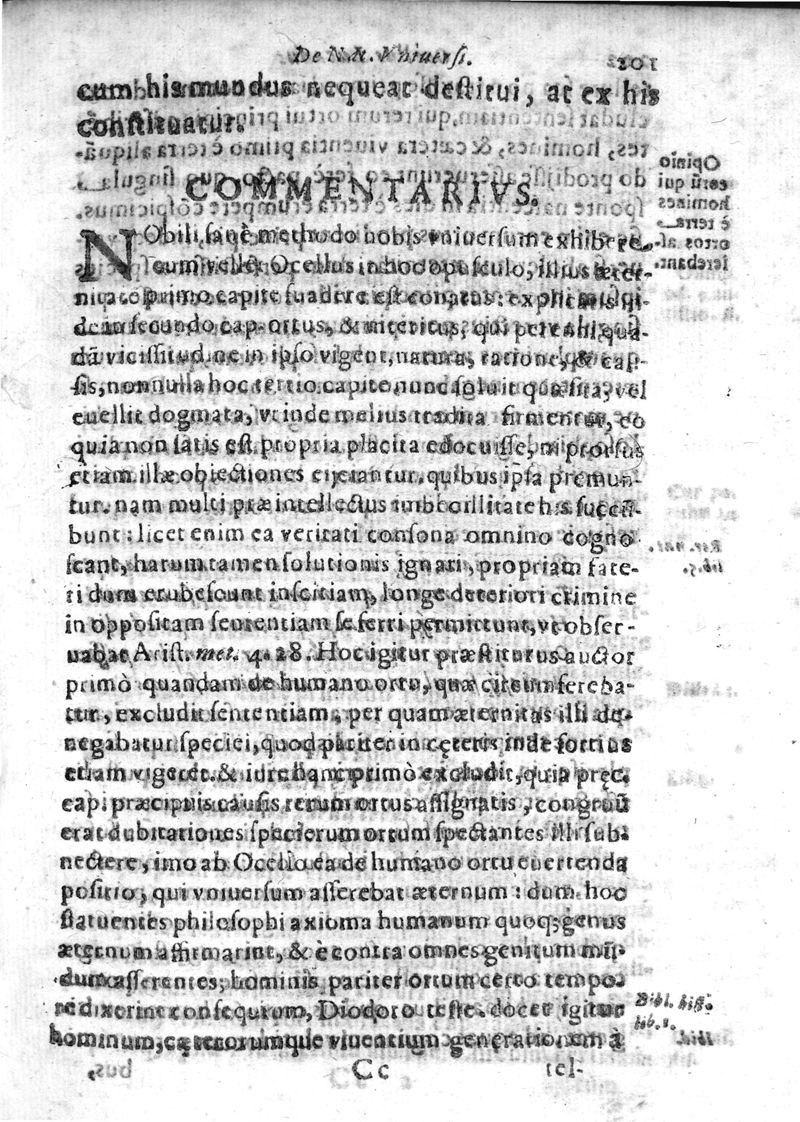 De N.N. Vniuersi.
cum his mundus nequeat destitui, at ex his
constituatur.
COMMENTARIVS.
NObili sanè methodo nobis vniuersum exhibere
velle Ocellus in hoc opusculo, illius æter-
primo capite suadere est conatus: explicatis
secundo cap. ortus, & interitus, qui per
vicissitudine in ipso vigent, natura, ratione, &
sis, nonnulla hoc tertio capite nunc soluit quæsita, vel
euellit dogmata, vt inde melius tradita firmentur, eo
quia non satis est propria placita edocuisse, ni prorsus
etiam illæ obiectiones eijciantur, quibus ipsa premun-
tur. nam multi præ intellectus imbecillitate his succū-
bunt: licet enim ea veritati consona omnino cogno
scant, harum tamen solutionis ignari, propriam fate-
ri dum erubescunt inscitiam, longe deteriori crimine
in oppositam sententiam se ferri permittunt, vt obser-
uabat Arist. met. 4. 28. Hoc igitur præstiturus auctor
primò quandam de humano ortu, quæ circumfereba-
tur, excludit sententiam, per quam æternitas illi de-
negabatur speciei, quod pariter in cęteris inde fortius
etiam vigeret. & primò excludit, quia pręc.
cap. præcipuis causis rerum ortus assignatis, congruū
erat dubitationes specierum ortum spectantes illi sub-
nectere, imo ab Ocello ea de humano ortu euertenda
positio, qui vniuersum asserebat æternum: dum hoc
statuentes philosophi axioma humanum quoq; genus
æternum affirmarint, & è contra omnes genitum mū-
dum asserentes, hominis pariter ortum certo tempo-
re dixerint consequutum, Diodoro teste. docet igitur
Bibl. hist.
lib. 1.
hominum, cæterorumque viuentium generationem à
Cc
tel-